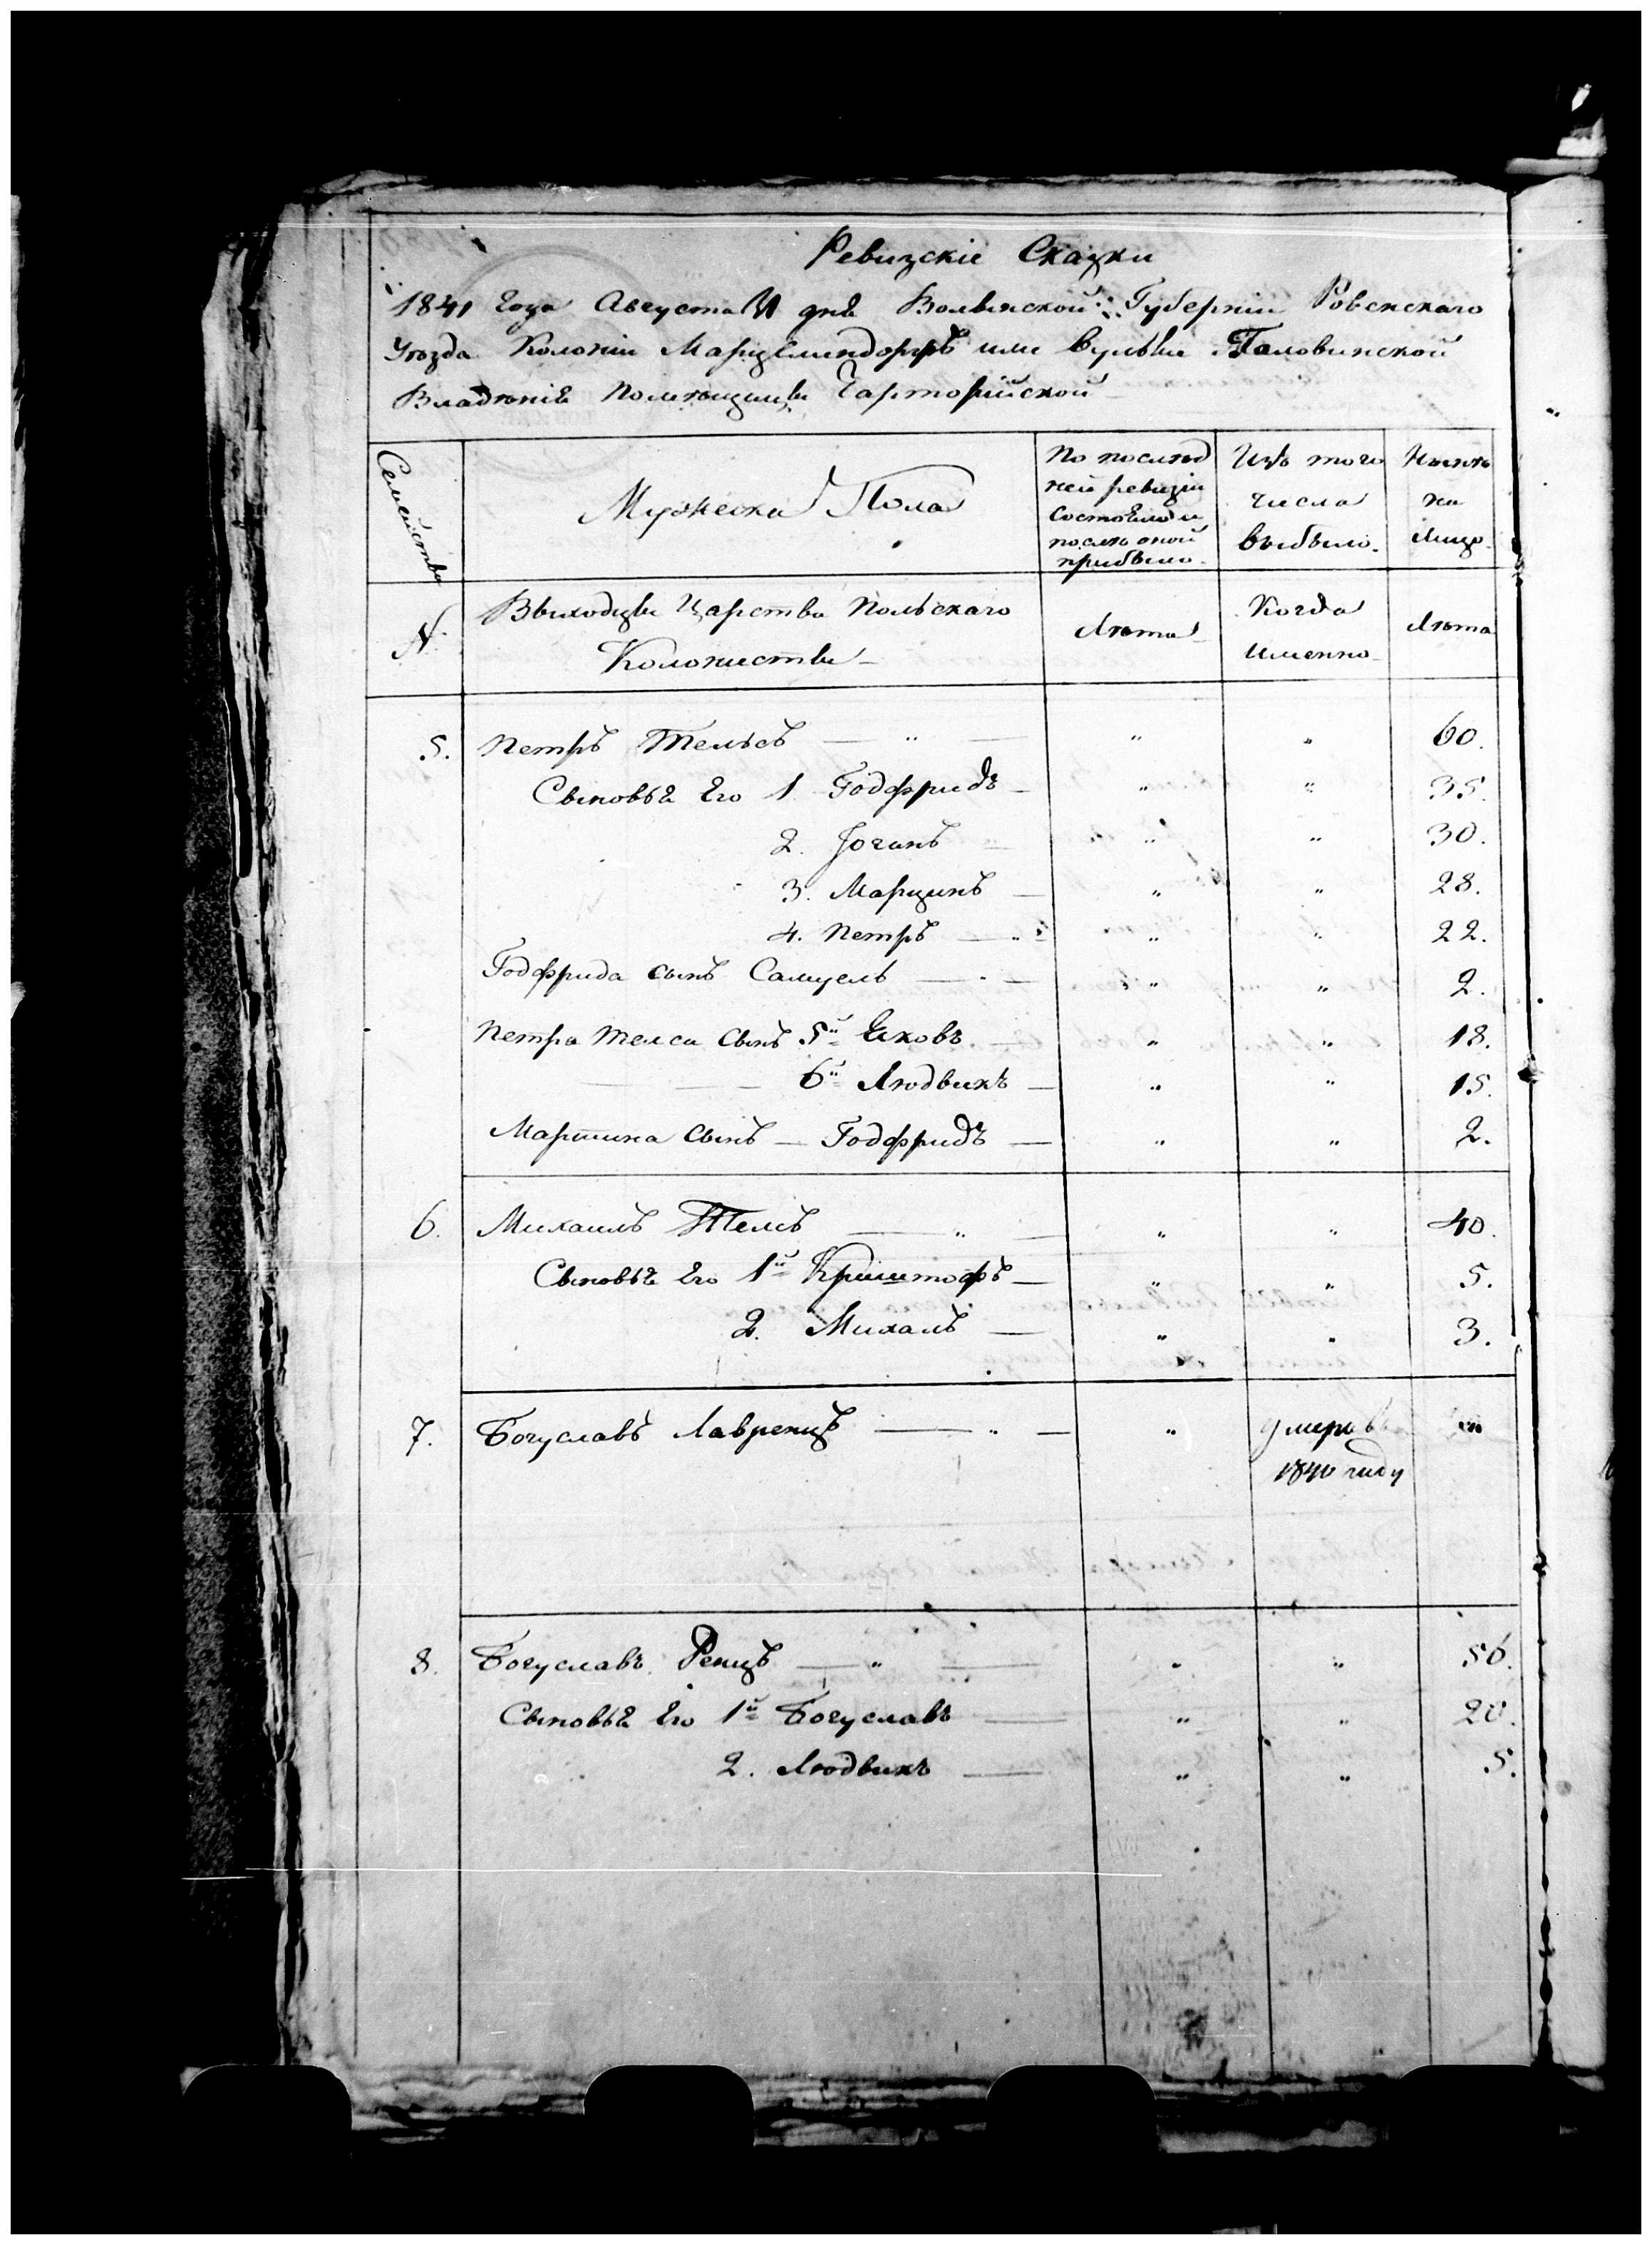 Ревизскіе Сказки
1841 года Августа дня Волынской Губерніи Ровенскаго
Уѣзда Колоніи Марцелиндорфъ или Вульки Головинской
Владѣнія Помѣщицы Чарторійской
Семейства
Мужеска Пола
По послѣд
ней ревизіи
состояло и
послѣ оной
прибыло.
Изъ того
числа
выбыло.
Нынѣ
на
лицо.
N.
Выходцы Царства Польскаго
Колонисты
Лѣта
Когда
именно
Лѣта
5. Петръ Тельсъ — " — " " 60.
Сыновья Его 1 Годфридъ — " " 35.
2. Іоганъ — " " 30.
3. Марцинъ — " " 28.
4. Петръ — " " 22.
Годфрида сынъ Самуель — " " 2.
Петра Телса Сынъ 5й Яковъ — " " 18.
— — 6й Людвикъ — " " 15.
Мартина Сынъ — Годфридъ — " " 2.
6. Михаилъ Телсъ — " — " " 40.
Сыновья Его 1й Криштофъ — " " 5.
2. Михалъ — " " 3.
7. Богуславъ Лавренцъ — " — " умеръ въ "
1840 году
8. Богуславъ Ренцъ — " — " " 56.
Сыновья Его 1й Богуславъ — " " 20.
2. Людвикъ — " " 5.